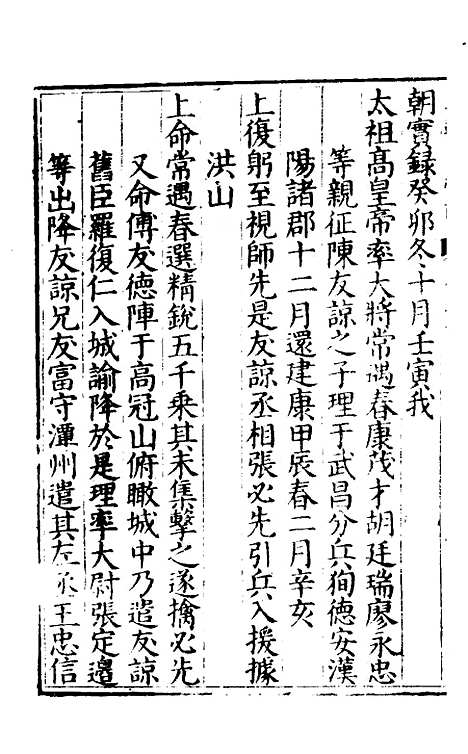 朝實録癸卯冬十月壬寅我
太祖高皇帝率大將常遇春康茂才胡廷瑞廖永忠
等親征陳友諒之子理于武昌分兵狥德安漢
陽諸郡十二月還建康甲辰春二月辛亥
上復躬至視師先是友諒丞相張必先引兵入援據
洪山
上命常遇春選精銳五千乗其未集擊之遂擒必先
又命傅友德陣于高冠山俯瞰城中乃遣友諒
舊臣羅復仁入城諭降於是理率大尉張定邉
等出降友諒兄友富守潭州遣其左丞王忠信